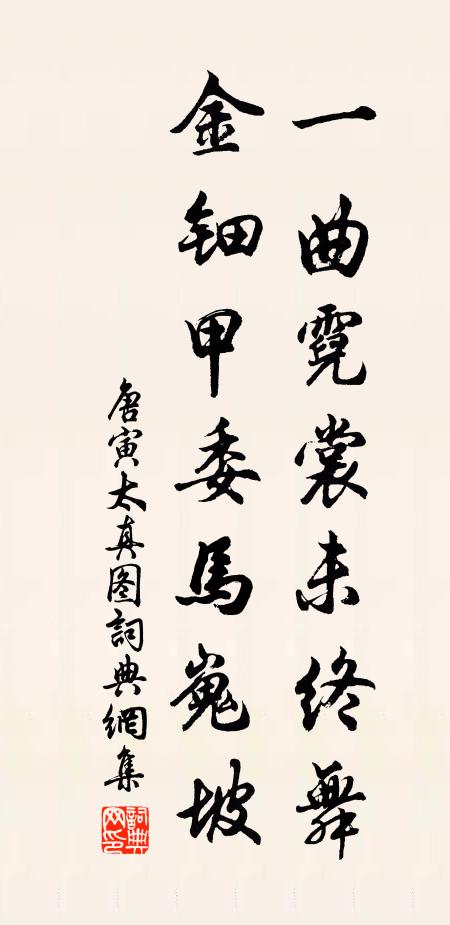 一曲霓裳未终舞
金钿甲委馬嵬坡
唐寅太真图詞典網集
詞典網印